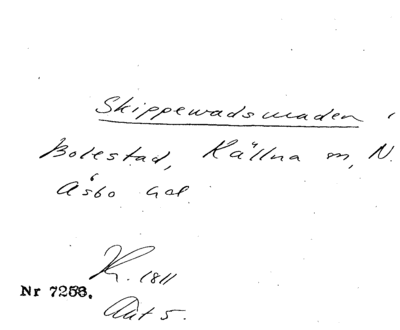 Skippewadsmaden i
Bolestad, Källna sn, N.
Åsbo hd.
K. 1811
Nr 7253.
Akt 5.